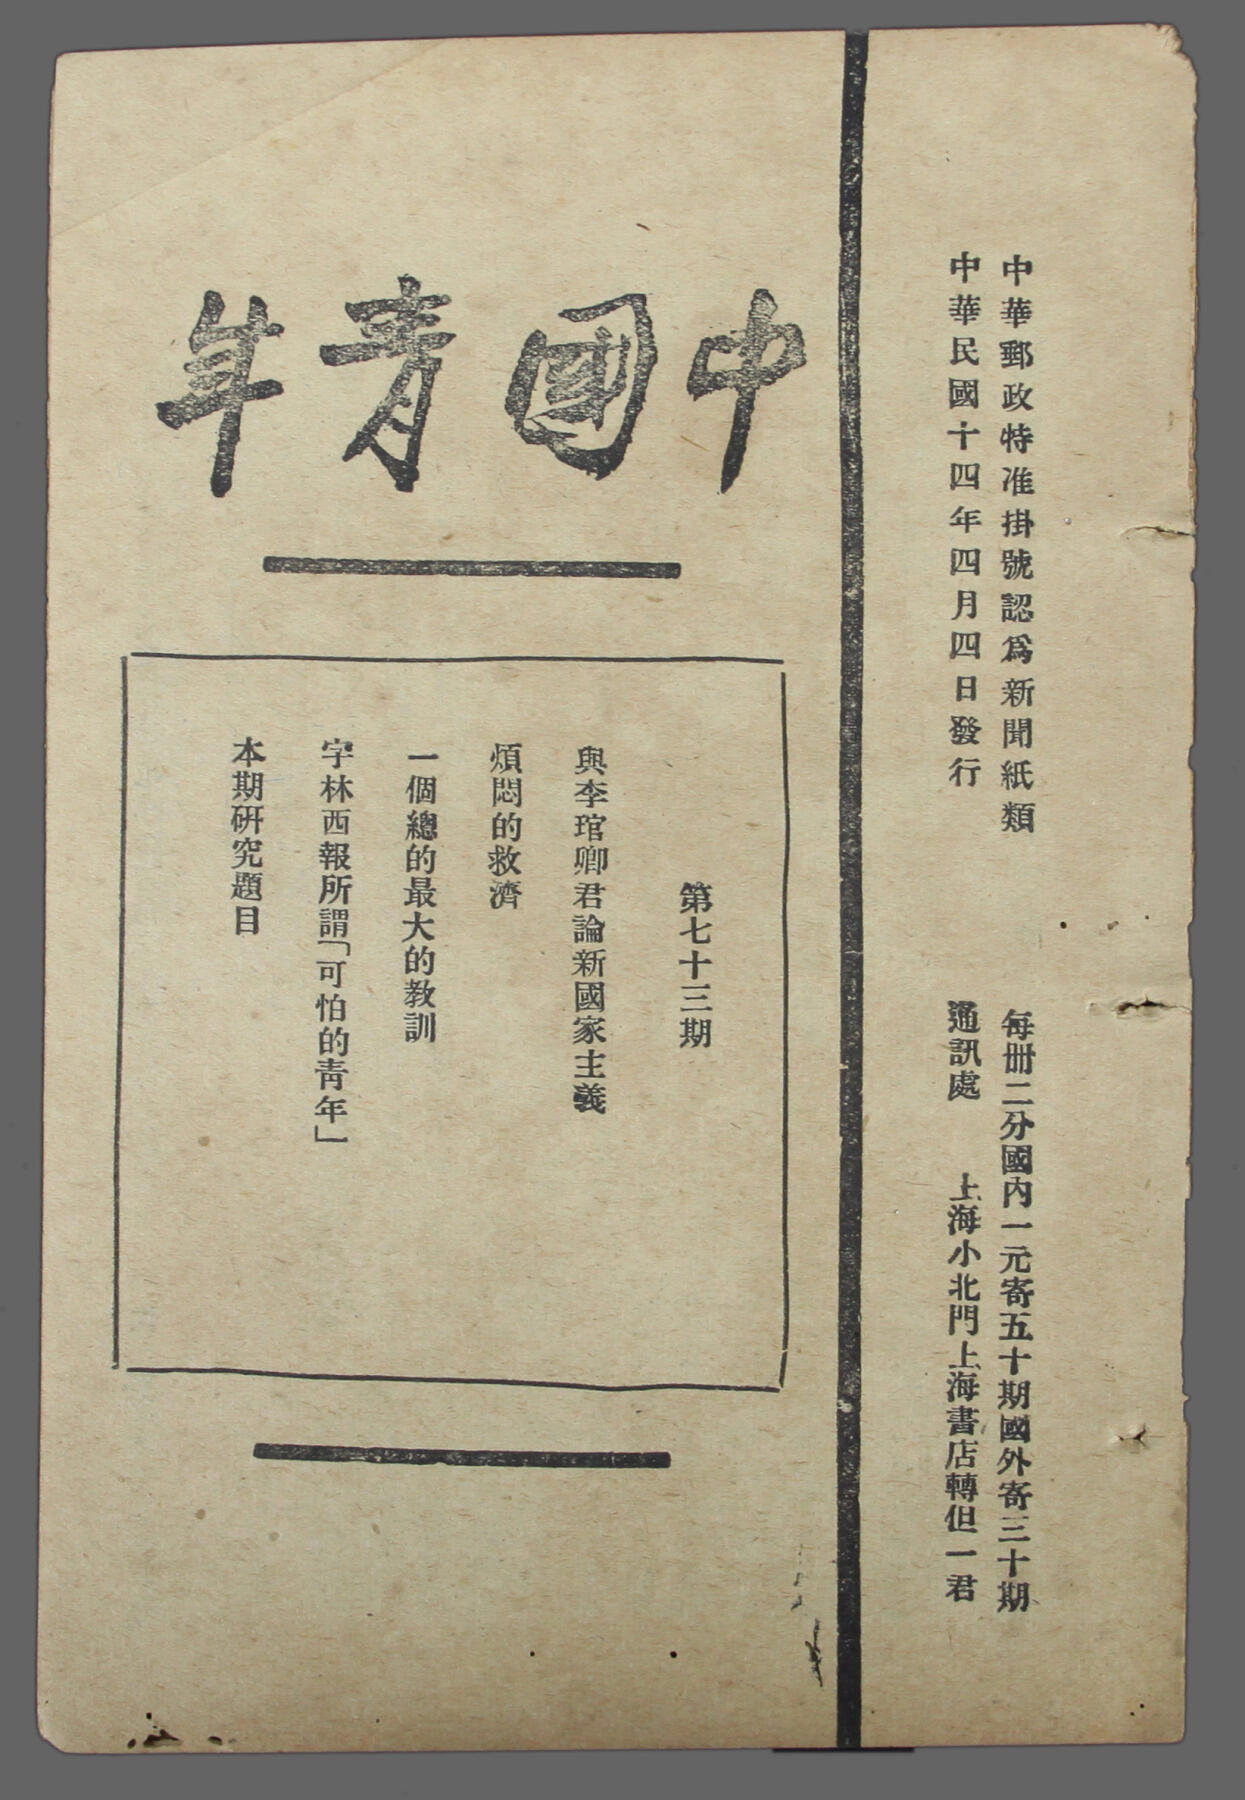 中華郵政特准掛號認爲新聞紙類
每冊二分國內一元寄五十期國外寄三十期
中華民國十四年四月四日發行
通訊處 上海小北門上海書店轉但一君
中國青年
第七十三期
與李琯卿君論新國家主義
煩悶的救濟
一個總的最大的教訓
字林西報所謂「可怕的靑年」
本期研究題目